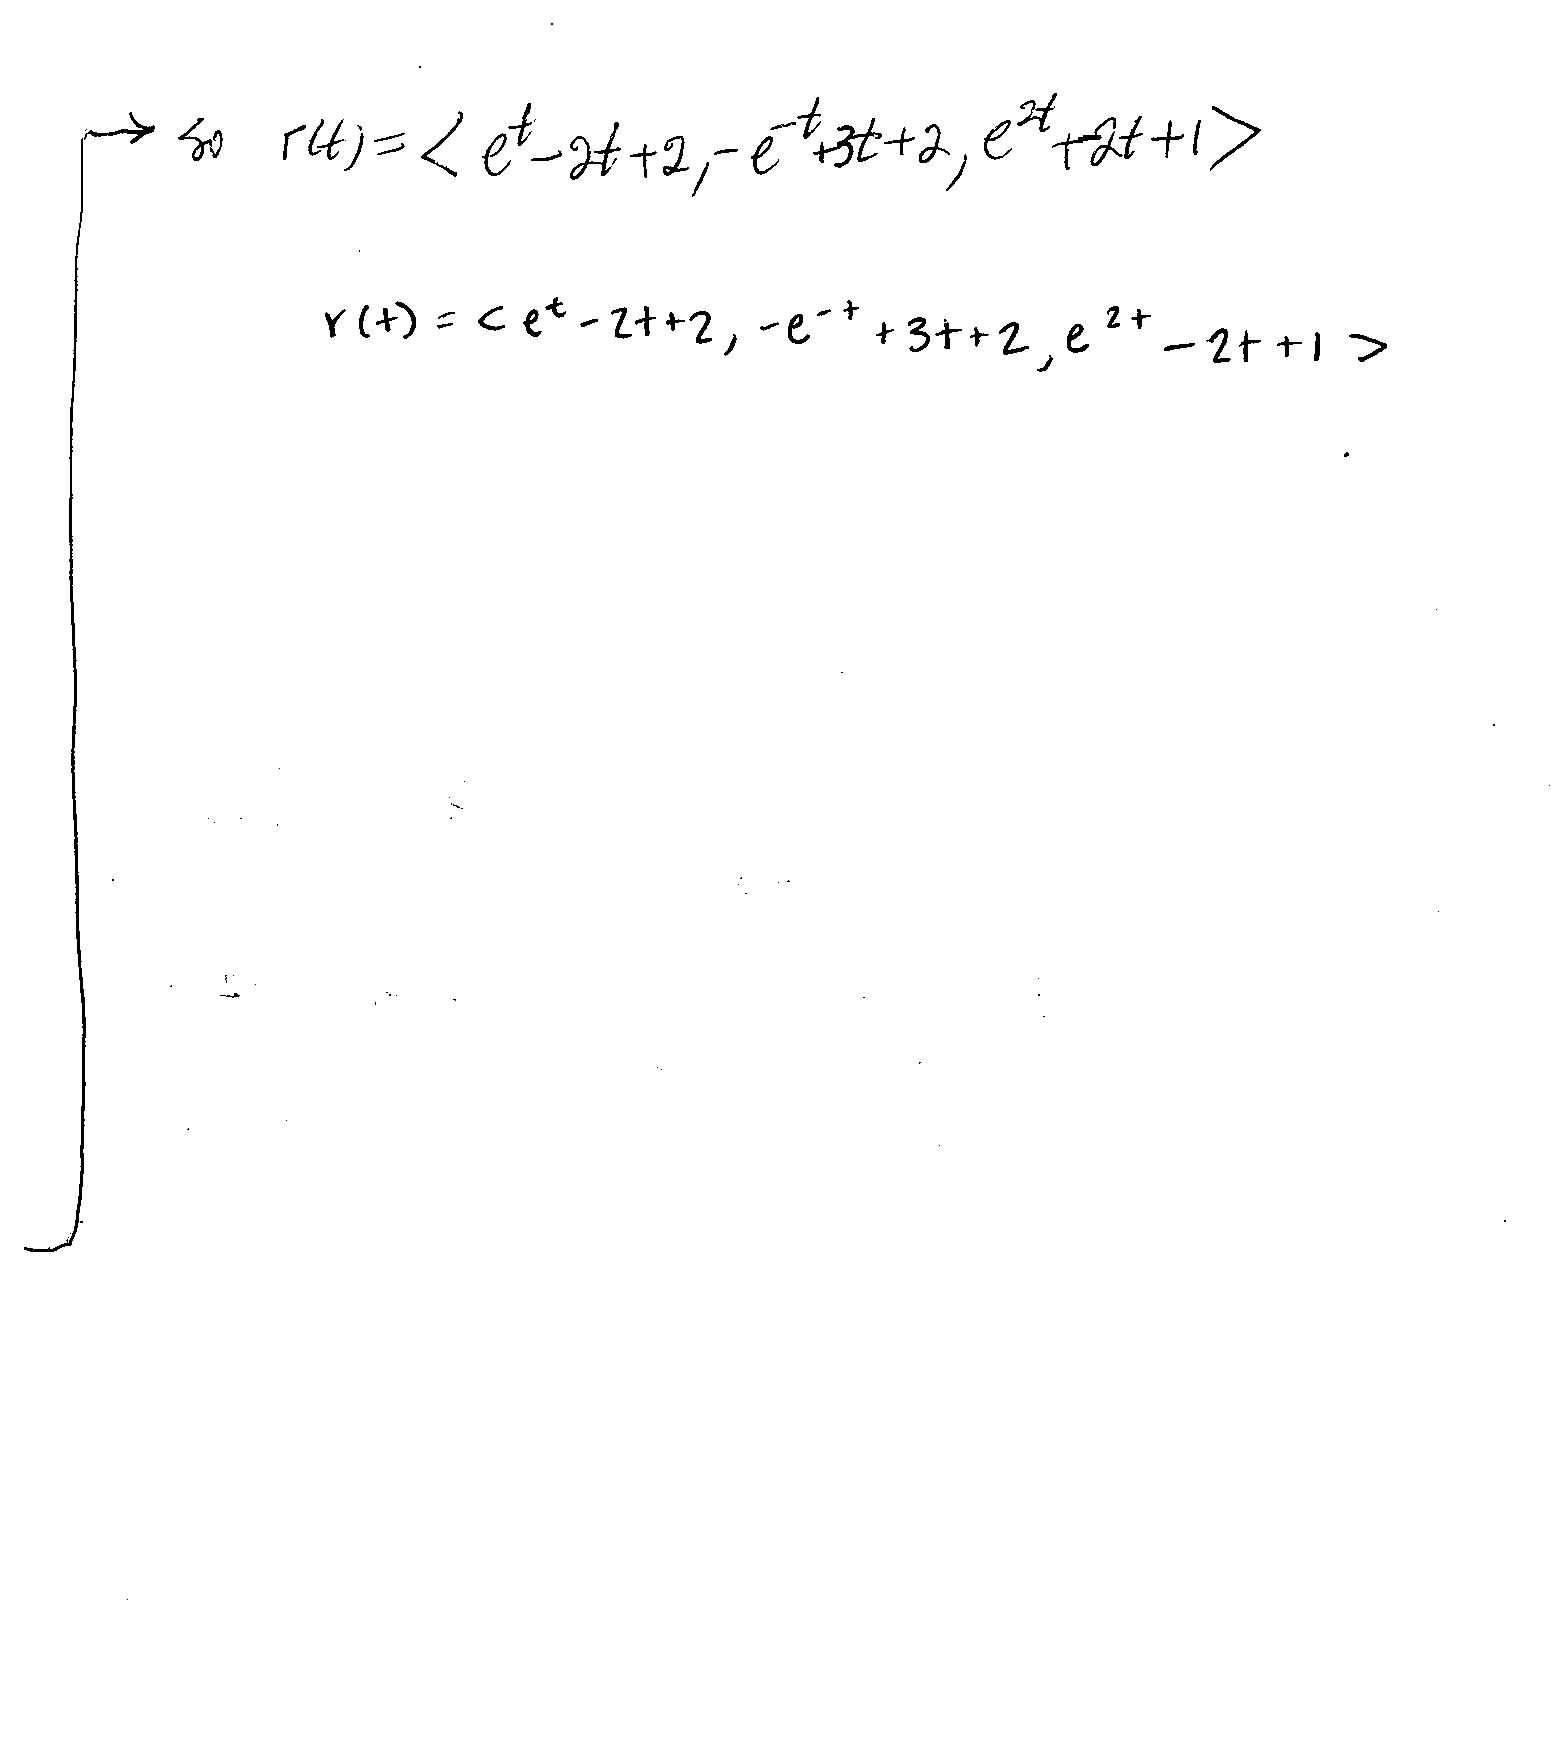 → so r(t) = < e^t - 2t + 2, -e^-t + 3t + 2, e^2t + -2t + 1 >
r(t) = < e^t - 2t + 2, -e^-t + 3t + 2, e^2t - 2t + 1 >